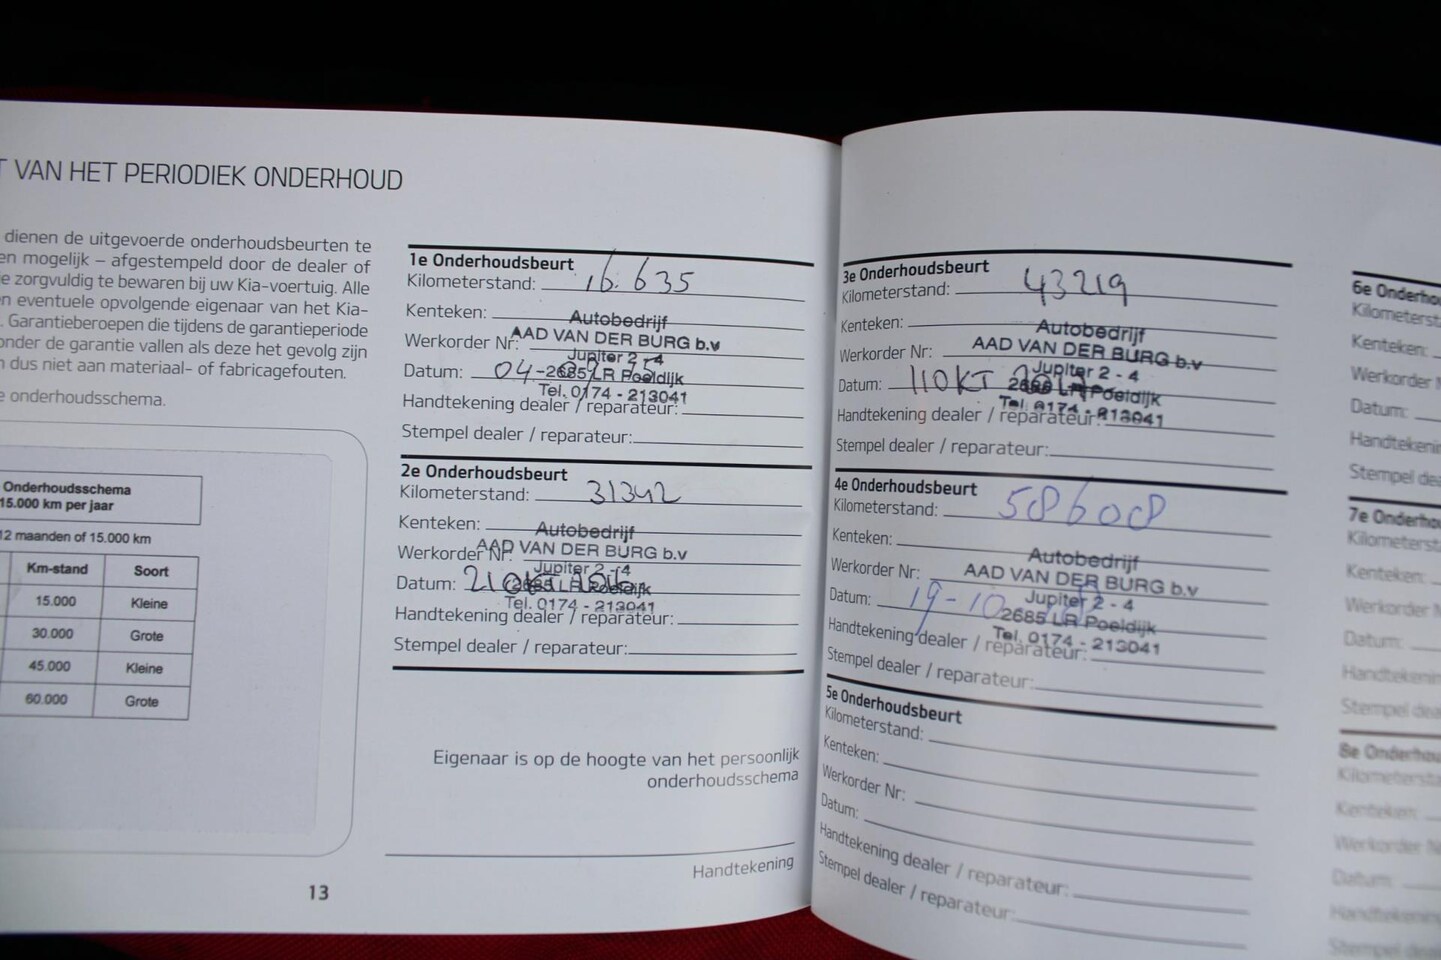 T VAN HET PERIODIEK ONDERHOUD
dienen de uitgevoerde onderhoudsbeurten te
en mogelijk – afgestempeld door de dealer of
e zorgvuldig te bewaren bij uw Kia-voertuig. Alle
n eventuele opvolgende eigenaar van het Kia-
. Garantieberoepen die tijdens de garantieperiode
onder de garantie vallen als deze het gevolg zijn
n dus niet aan materiaal- of fabricagefouten.
e onderhoudsschema.
Onderhoudsschema
15.000 km per jaar
12 maanden of 15.000 km
Km-stand Soort
15.000 Kleine
30.000 Grote
45.000 Kleine
60.000 Grote
13
1e Onderhoudsbeurt
Kilometerstand: 16.635
Kenteken:
Autobedrijf
AAD VAN DER BURG b.v
Werkorder Nr:
Jupiter 2 - 4
Datum: 04-
2685 LR Poeldijk
Tel. 0174 - 213041
Handtekening dealer / reparateur:
Stempel dealer / reparateur:
2e Onderhoudsbeurt
Kilometerstand: 31342
Kenteken:
Autobedrijf
AAD VAN DER BURG b.v
Werkorder Nr:
Jupiter 2 - 4
Datum: 21 OKT
2685 LR Poeldijk
Tel. 0174 - 213041
Handtekening dealer / reparateur:
Stempel dealer / reparateur:
Eigenaar is op de hoogte van het persoonlijk
onderhoudsschema
Handtekening
3e Onderhoudsbeurt
Kilometerstand: 43219
Kenteken:
Autobedrijf
AAD VAN DER BURG b.v
Werkorder Nr:
Jupiter 2 - 4
Datum: 11 OKT
2685 LR Poeldijk
Tel. 0174 - 213041
Handtekening dealer / reparateur:
Stempel dealer / reparateur:
4e Onderhoudsbeurt
Kilometerstand: 58608
Kenteken:
Autobedrijf
AAD VAN DER BURG b.v
Werkorder Nr:
Jupiter 2 - 4
Datum: 19-10
2685 LR Poeldijk
Tel. 0174 - 213041
Handtekening dealer / reparateur:
Stempel dealer / reparateur:
5e Onderhoudsbeurt
Kilometerstand:
Kenteken:
Werkorder Nr:
Datum:
Handtekening dealer / reparateur:
Stempel dealer / reparateur:
6e Onderhou
Kilometerst
Kenteken:
Werkorder N
Datum:
Handtekeni
Stempel dea
7e Onderho
Kilometerst
Kenteken:
Werkorder
Datum:
Handtekenin
Stempel dea
8e Onderhou
Kilometersta
Kenteken:
Werkorder N
Datum:
Handtekenin
Stempel dea